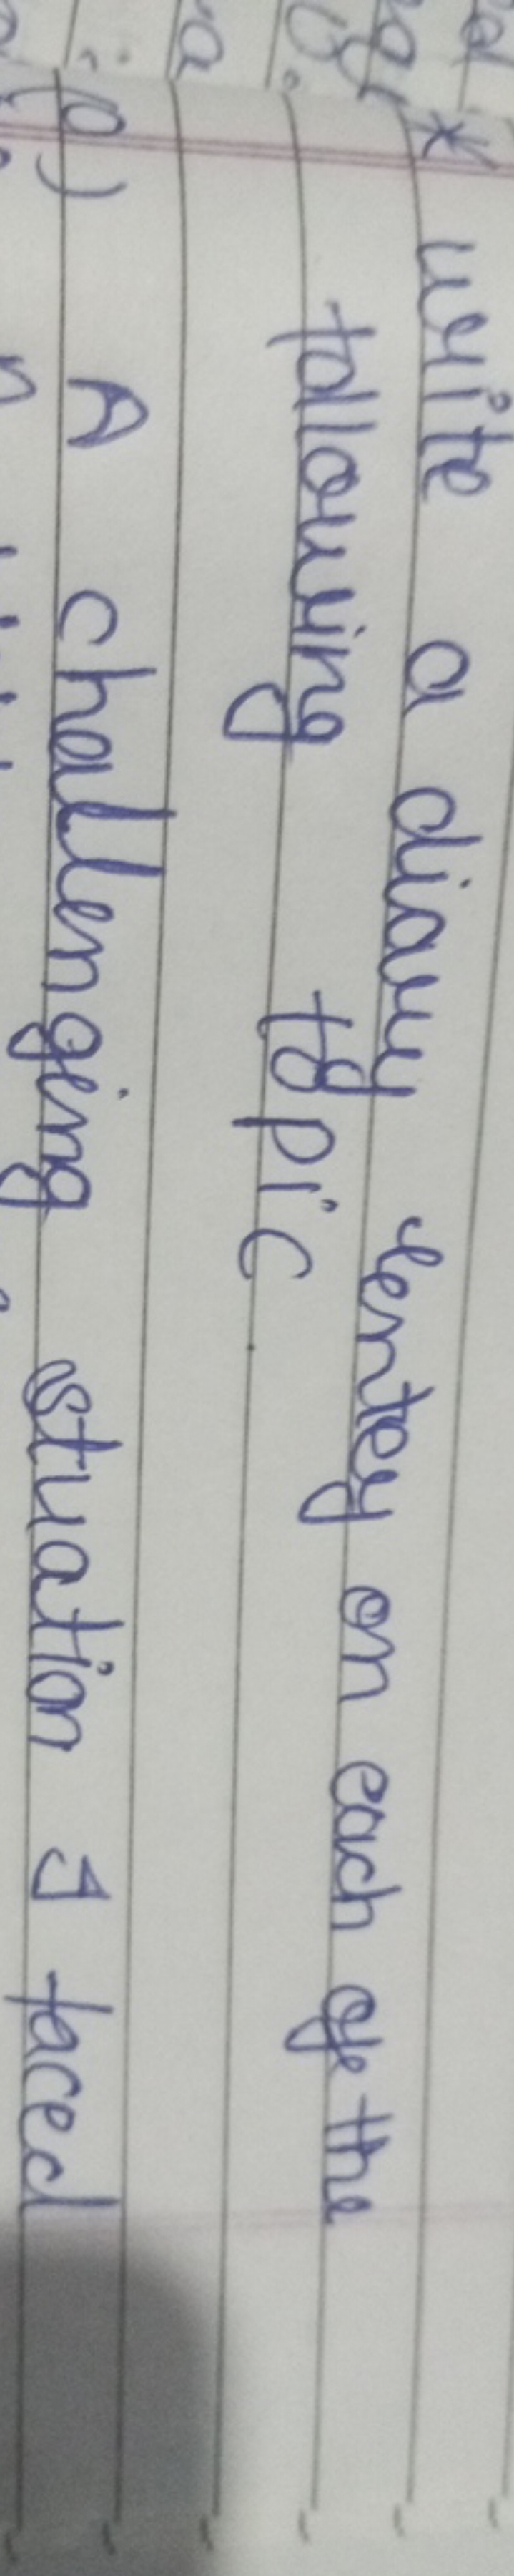 * write a diary entry on each of the
following topic.
A challenging stuation I faced